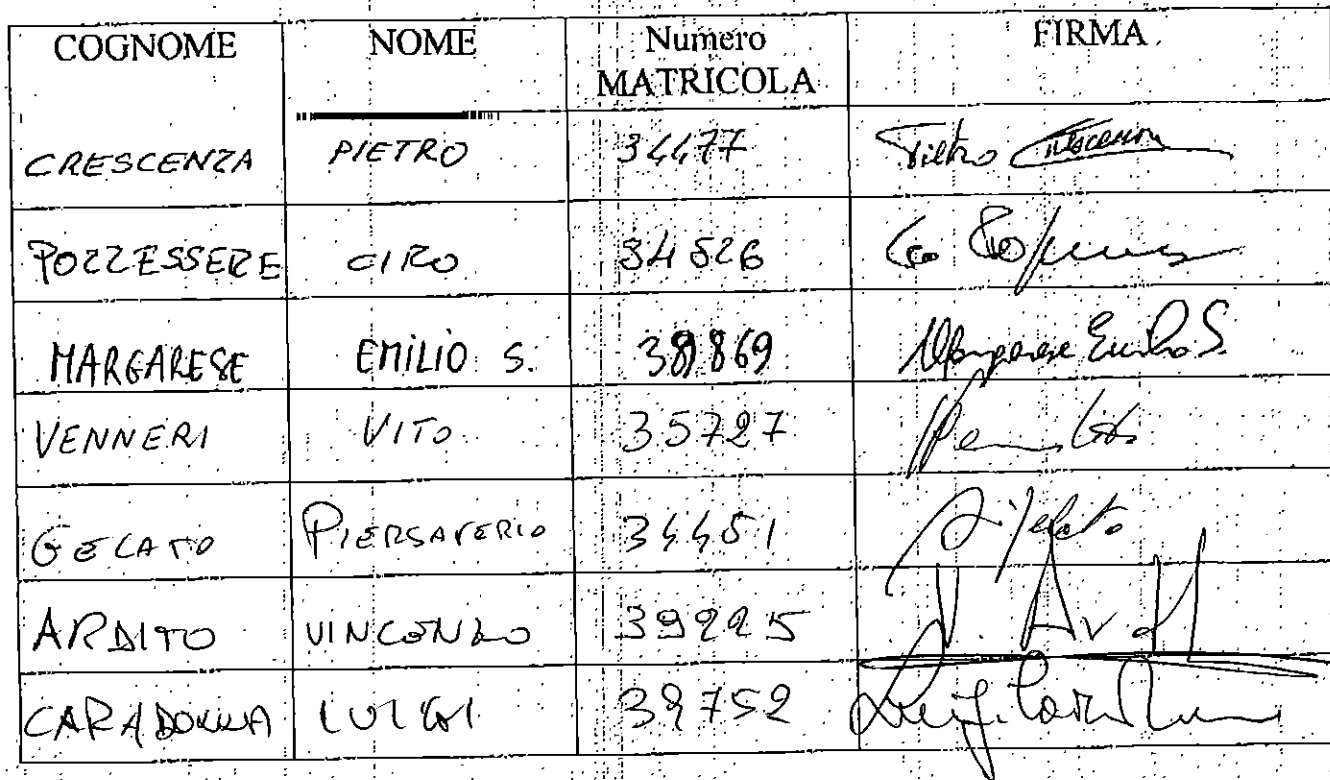 COGNOME NOME Numero MATRICOLA FIRMA
CRESCENZA PIETRO 34477 Pietro Crescenza
POZZESSERE CIRO 34526
MARGARESE EMILIO S. 38869 Margarese Emilio S.
VENNERI VITO 35727
GELATO PIERSAVERIO 34451
ARDITO VINCENZO 39225
CARADONNA LUIGI 39752